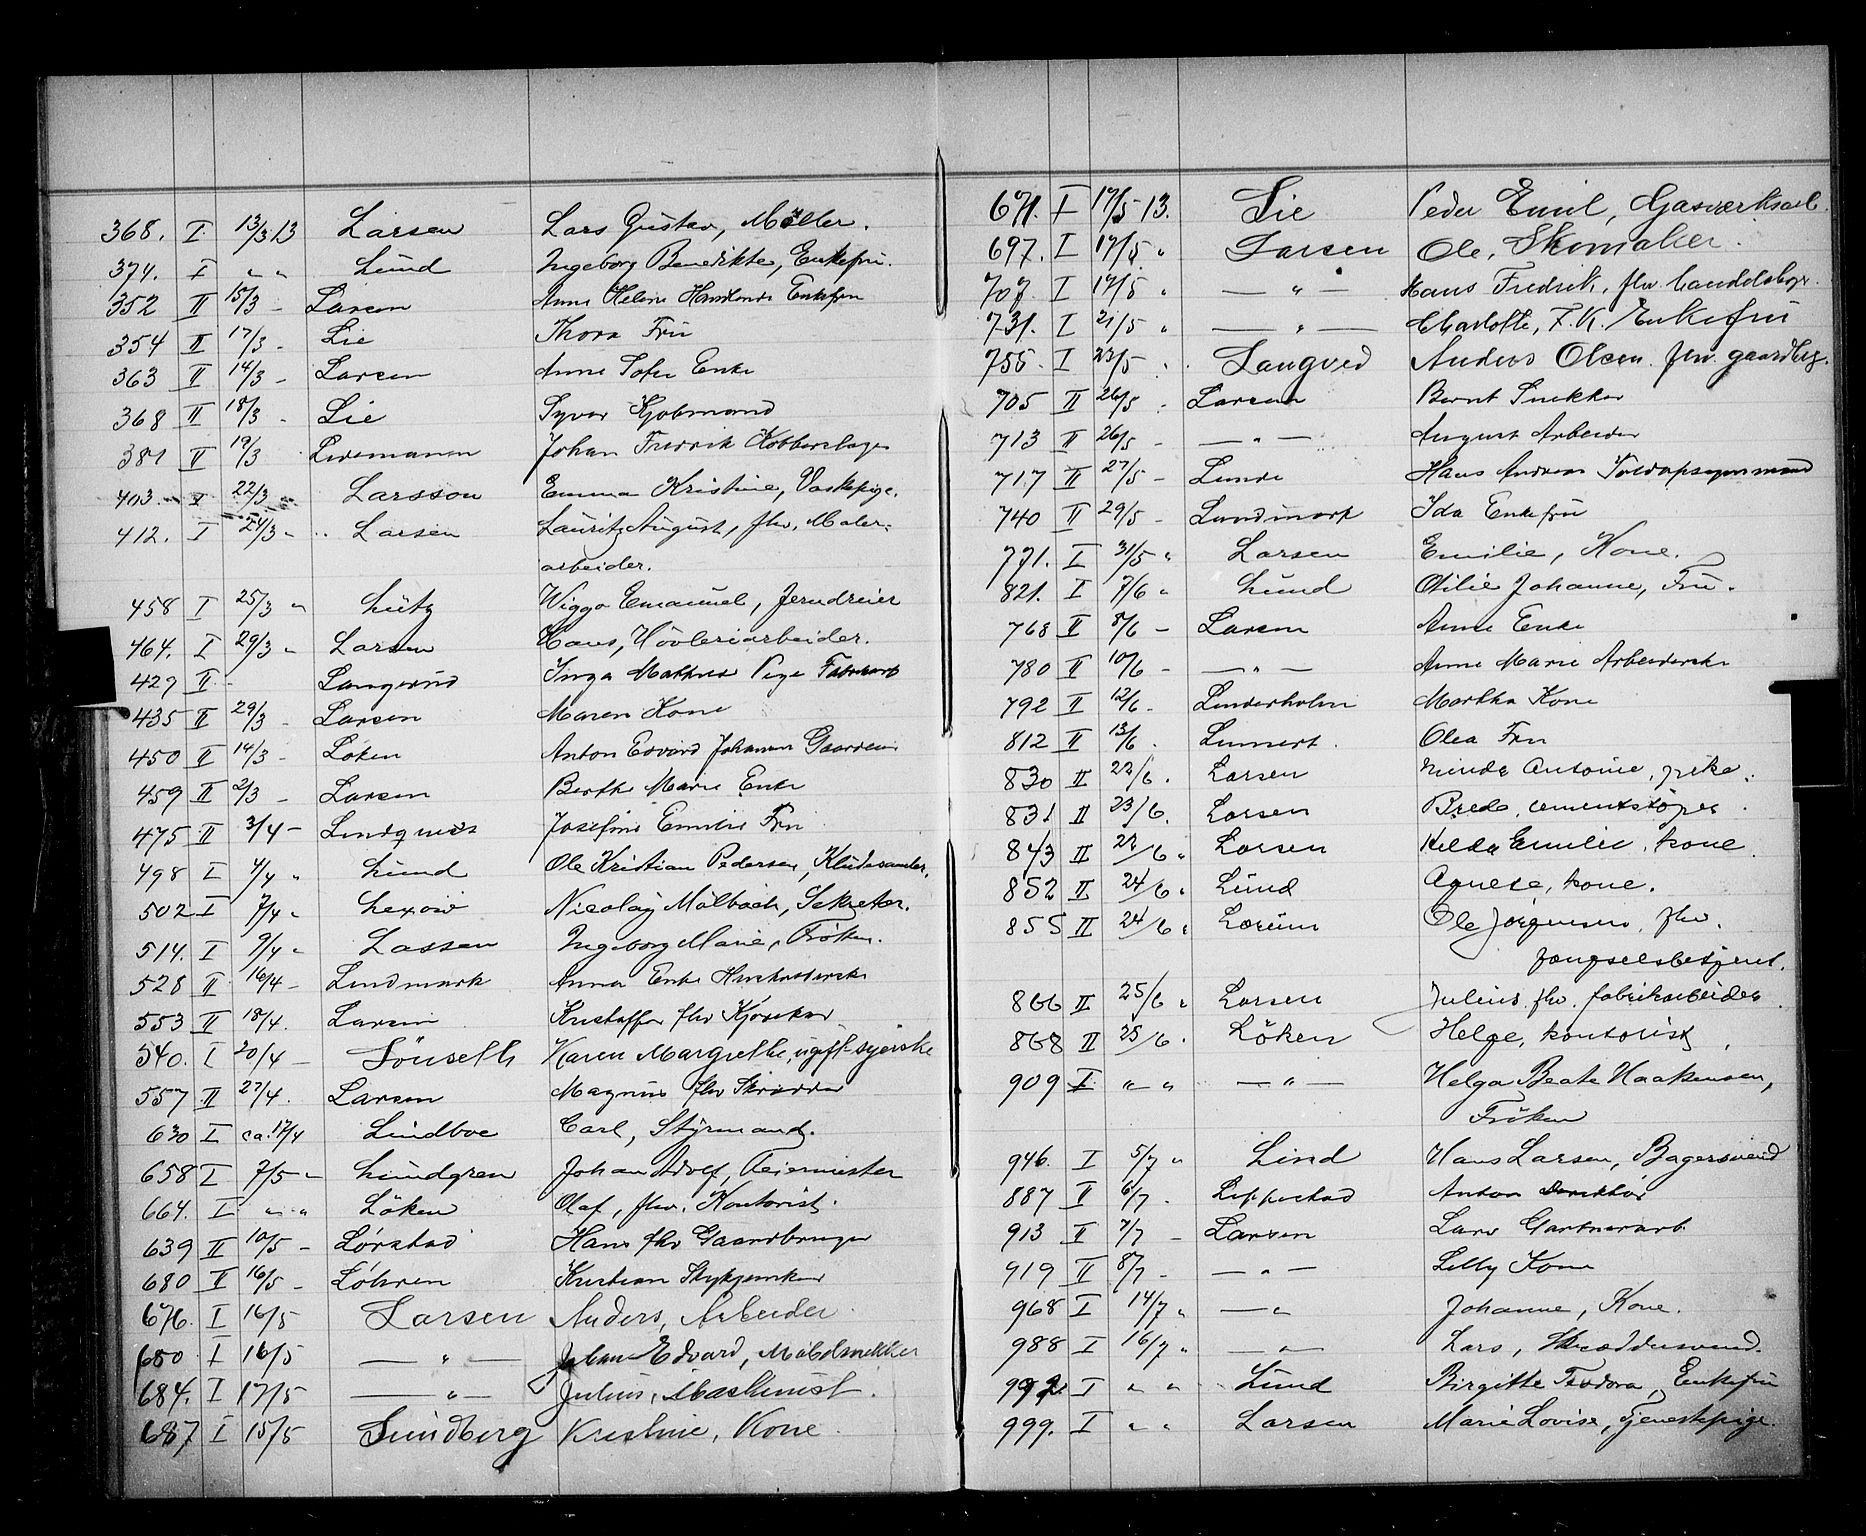 368. I 13/3 13 Larsen Lars Gustav, Møller.
374. I " " Lund Ingeborg Benedikte, Enkefru.
352 II 15/3 - Larsen Anne Helene Enkefru
354 II 17/3 - Lie Thora Fru
363 II 14/3 - Larsen Anne Sofie Enke
368 II 18/3 - Lie Syver Kjøbmand
381 II 19/3 Johan Fredrik Kobberslager
403. I 22/3 " Larsson Emma Kristine, Vaskepige.
412. I 24/3 " Larsen Lauritz August, fhv. Maler-
arbeider.
458 I 25/3 " Lütz Wiggo Emanuel, Jerndreier
464. I 29/3 " Larsen Hans, Høvleriarbeider.
429 II - Langerud Inga Mathea Pige
435 II 29/3 - Larsen Maren Kone
450 II 14/3 - Løken Anton Edvard Johansen
459 II 2/3 - Larsen Berthe Marie Enke
475 II 3/4 - Lindquist Josefine Emilie Fru
498 I 4/4 " Lund Ole Kristian Pedersen, Kludesamler.
502 I 7/4 " Lexow Nicolay Mølbach, Sekretær.
514. I 9/4 " Lassen Ingeborg Marie, Frøken.
528 II 16/4 - Lindmark Anna Enke
553 II 18/4. Larsen Kristoffer fhv
540. I 20/4 - Lönseth Karen Margrethe, ugift syerske
557 II 27/4. Larsen Magnus fhv Skrædder
630 I ca. 17/4 Lindboe Carl, Styrmand.
658 I 7/5 " Lundgren Johan Adolf, Feiermester
664. I " " Løken Olaf, fhv. Kontorist.
639 II 10/5 - Lørstad Hans fhv Gaardbruger
680 II 16/5 - Løhren Kristian
676. I 16/5 Larsen Anders, Arbeider
680 I 16/5 — " — Johan Edvard, Møbelsnekker
684. I 17/5 — " — Julius, Maskinist.
687 I 15/5 Lundberg Kristine, Kone.
671. I 17/5 13. Lie Peder Emil, Gasverksarb.
697. I 17/5 " Larsen Ole, Skomaker.
707. I 17/5 " — " — Hans Fredrik, fhv. handelsbgr.
731. I 21/5 " — " — Charlotte, F. K. Enkefru
755. I 23/5 " Langved Anders Olsen fhv. gaardbrg.
705 II 26/5 - Larsen Bernt Snekker
713 II 26/5 - — " — August Arbeider
717 II 27/5 - Lunde Hans Andreas
740 II 29/5 - Lundmark Ida Enkefru
771. I 31/5 " Larsen Emilie, Kone.
821. I 7/6 " Lund Otilie Johanne, Fru.
768 II 8/6 - Larsen Anne Enke
780 II 10/6 - — " — Anne Marie Arbeiderske
792 II 12/6 - Linderholm Martha Kone
812 II 13/6. Linnert. Olea Fru
830 II 22/6. Larsen Antonie, pike.
831 II 23/6. Larsen Brede, cementstøper.
843 II 22/6 " Larsen Hilda Emilie, kone.
852 II 24/6 " Lund Agnete, kone.
855 II 24/6 " Lærum Ole Jørgensen, fhv.
fængselsbetjent.
866 II 25/6 " Larsen Julius. fhv. fabrikarbeider.
868 II 25/6. Løken Helge, kontorist,
909 I " " — " — Helga Beate Haakensen,
Frøken
946. I 5/7 " Lind Hans Larsen, Bagersvend
887 II 6/7. Lippestad Anton Direktør
913 II 7/7 - Larsen Lars Gartnerarb.
919 II 8/7 - — " — Lilly Kone
968 I 14/7 " — " Johanne, Kone.
988 I 16/7 " — " — Lars, Skræddersvend.
992. I " " Lund Birgitte Teodora, Enkefru
999. I " " Larsen Marie Lovise, Tjenestepige.